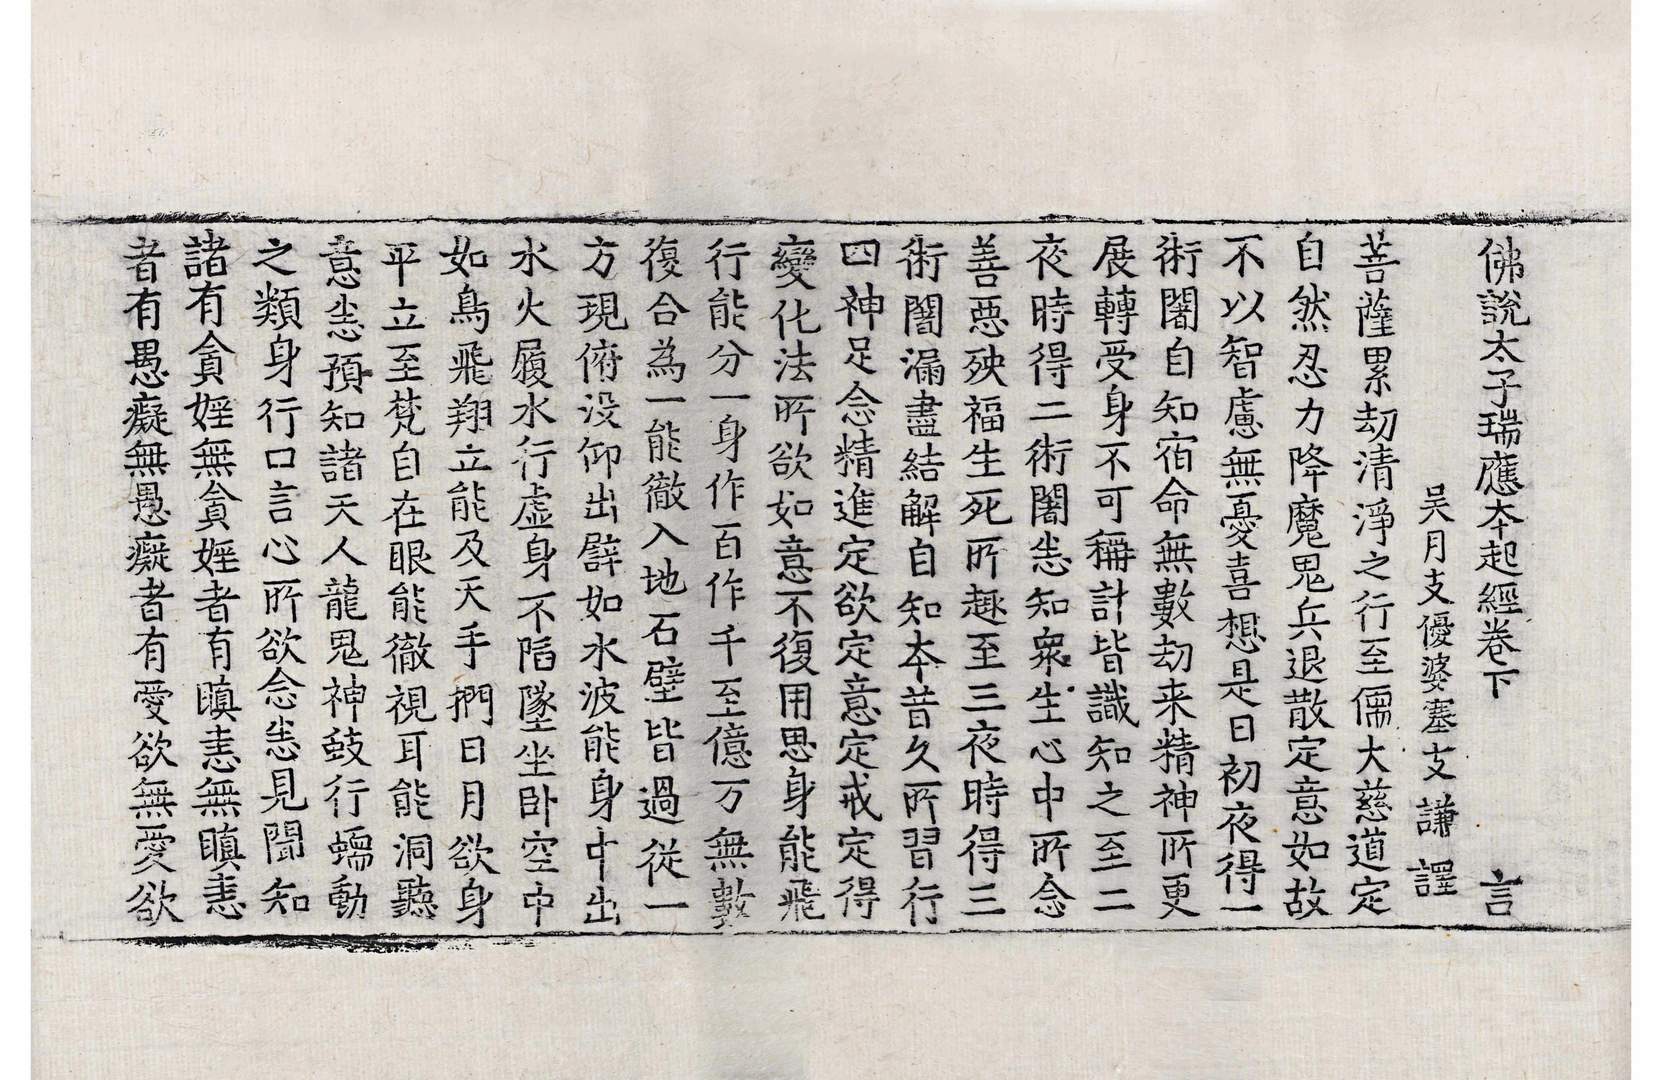 佛說太子瑞應本起經卷下 言
吳月支優婆塞支謙譯
菩薩累劫清淨之行至儒大慈道定
自然忍力降魔鬼兵退散定意如故
不以智慮無憂喜想是日初夜得一
術闍自知宿命無數劫来精神所更
展轉受身不可稱計皆識知之至二
夜時得二術闍悉知衆生心中所念
善惡殃福生死所趣至三夜時得三
術闍漏盡結解自知本昔久所習行
四神足念精進定欲定意定戒定得
變化法所欲如意不復用思身能飛
行能分一身作百作千至億万無數
復合為一能徹入地石壁皆過從一
方現俯没仰出辟如水波能身中出
水火履水行虛身不陷墜坐卧空中
如鳥飛翔立能及天手捫日月欲身
平立至梵自在眼能徹視耳能洞聽
意悉預知諸天人龍鬼神蚑行蠕動
之類身行口言心所欲念悉見聞知
諸有貪婬無貪婬者有瞋恚無瞋恚
者有愚癡無愚癡者有愛欲無愛欲